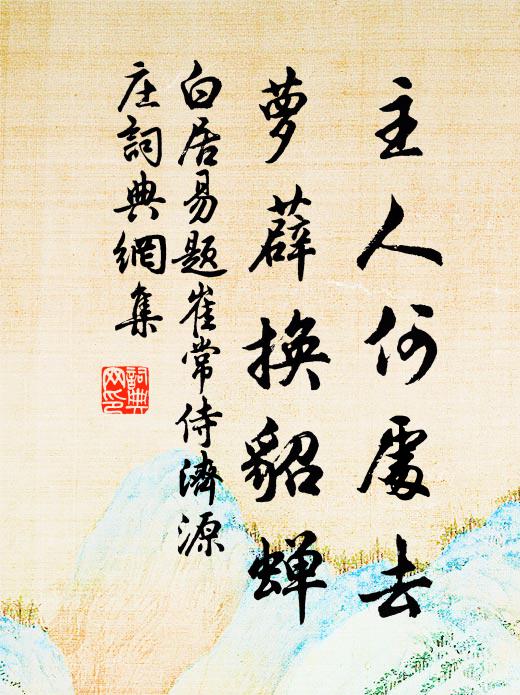 主人何處去
萝薜換貂蟬
白居易題崔常侍濟源
庄詞典網集
詞典網印